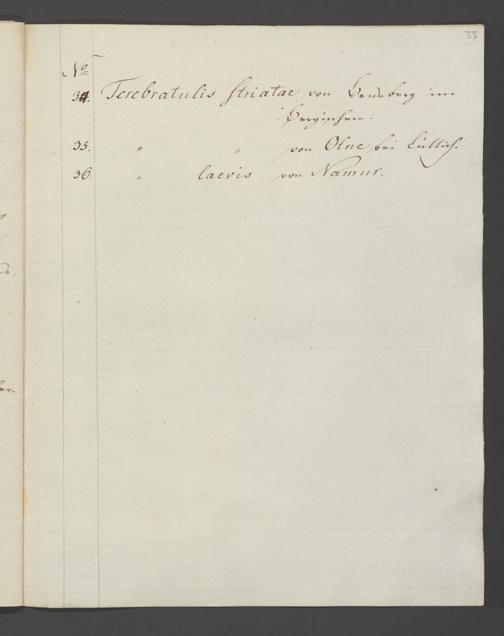 33
No
34. Terebratulis striatae von Bensberg im
Bergischen.
35. " " von Olne bei Lüttich.
36. " laevis von Namur.